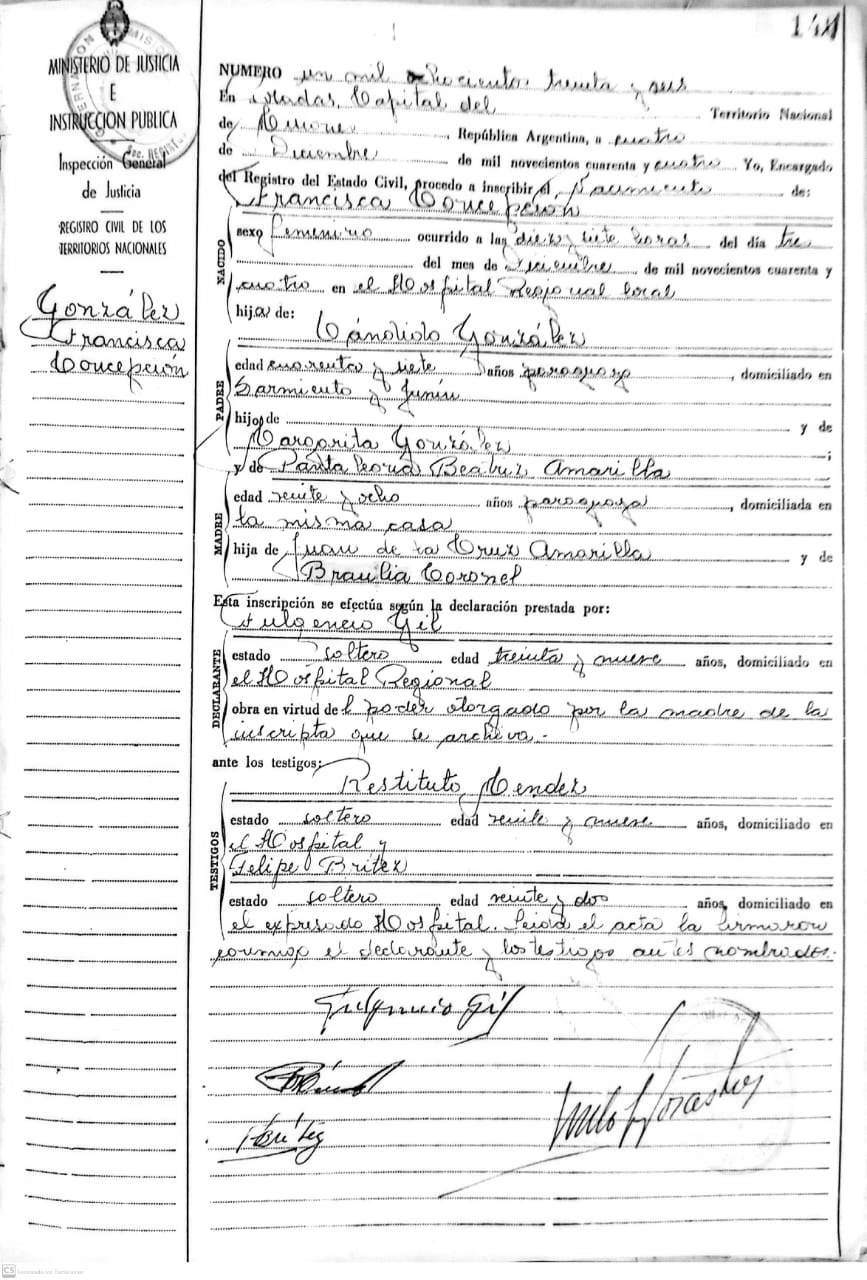 144
MINISTERIO DE JUSTICIA
E
INSTRUCCION PUBLICA
Inspección General
de Justicia
REGISTRO CIVIL DE LOS
TERRITORIOS NACIONALES
González
Francisca
Concepción
NUMERO un mil ochocientos treinta y seis
En Posadas, Capital del Territorio Nacional
de Misiones, República Argentina, a cuatro
de Diciembre de mil novecientos cuarenta y cuatro Yo, Encargado
del Registro del Estado Civil, procedo a inscribir el Nacimiento de:
Francisca Concepción
NACIDO
sexo femenino ocurrido a las diez y siete horas del día tres
del mes de Diciembre de mil novecientos cuarenta y
cuatro en el Hospital Regional local
hija de:
Cándido González
PADRE
edad cuarenta y siete años paraguayo, domiciliado en
Sarmiento y Junín
hijo de y de
Margarita González;
y de Panta leona Beatriz Amarilla
MADRE
edad veinte y ocho años paraguaya, domiciliada en
la misma casa
hija de Juan de la Cruz Amarilla y de
Braulia Coronel
Esta inscripción se efectúa según la declaración prestada por:
Fulgencio Gil
DECLARANTE
estado soltero edad treinta y nueve años, domiciliado en
el Hospital Regional
obra en virtud del poder otorgado por la madre de la
inscripta que se archiva.-
ante los testigos:
Restituto Mendez
TESTIGOS
estado soltero edad veinte y nueve años, domiciliado en
el Hospital y
Felipe Britez
estado soltero edad veinte y dos años, domiciliado en
el expresado Hospital. Leida el acta la firmaron
conmigo el declarante y los testigos antes nombrados.-
Fulgencio Gil
Britez
CS